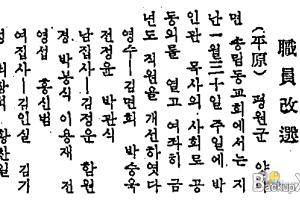 職員改選
(平原) 평원군 양
면 송림동교회에서는 지
난一월三十일 주일에 박
인관 목사의 사회로 공
동의를 열고 여좌히 금
년도 직원을 개선하엿다
영수—김면희 박승욱
전정윤 박관식
남집사—김정운 함원
경 박봉식 이용재 전
영섭 홍신범
여집사—김인실 김기
황찬원
Backup